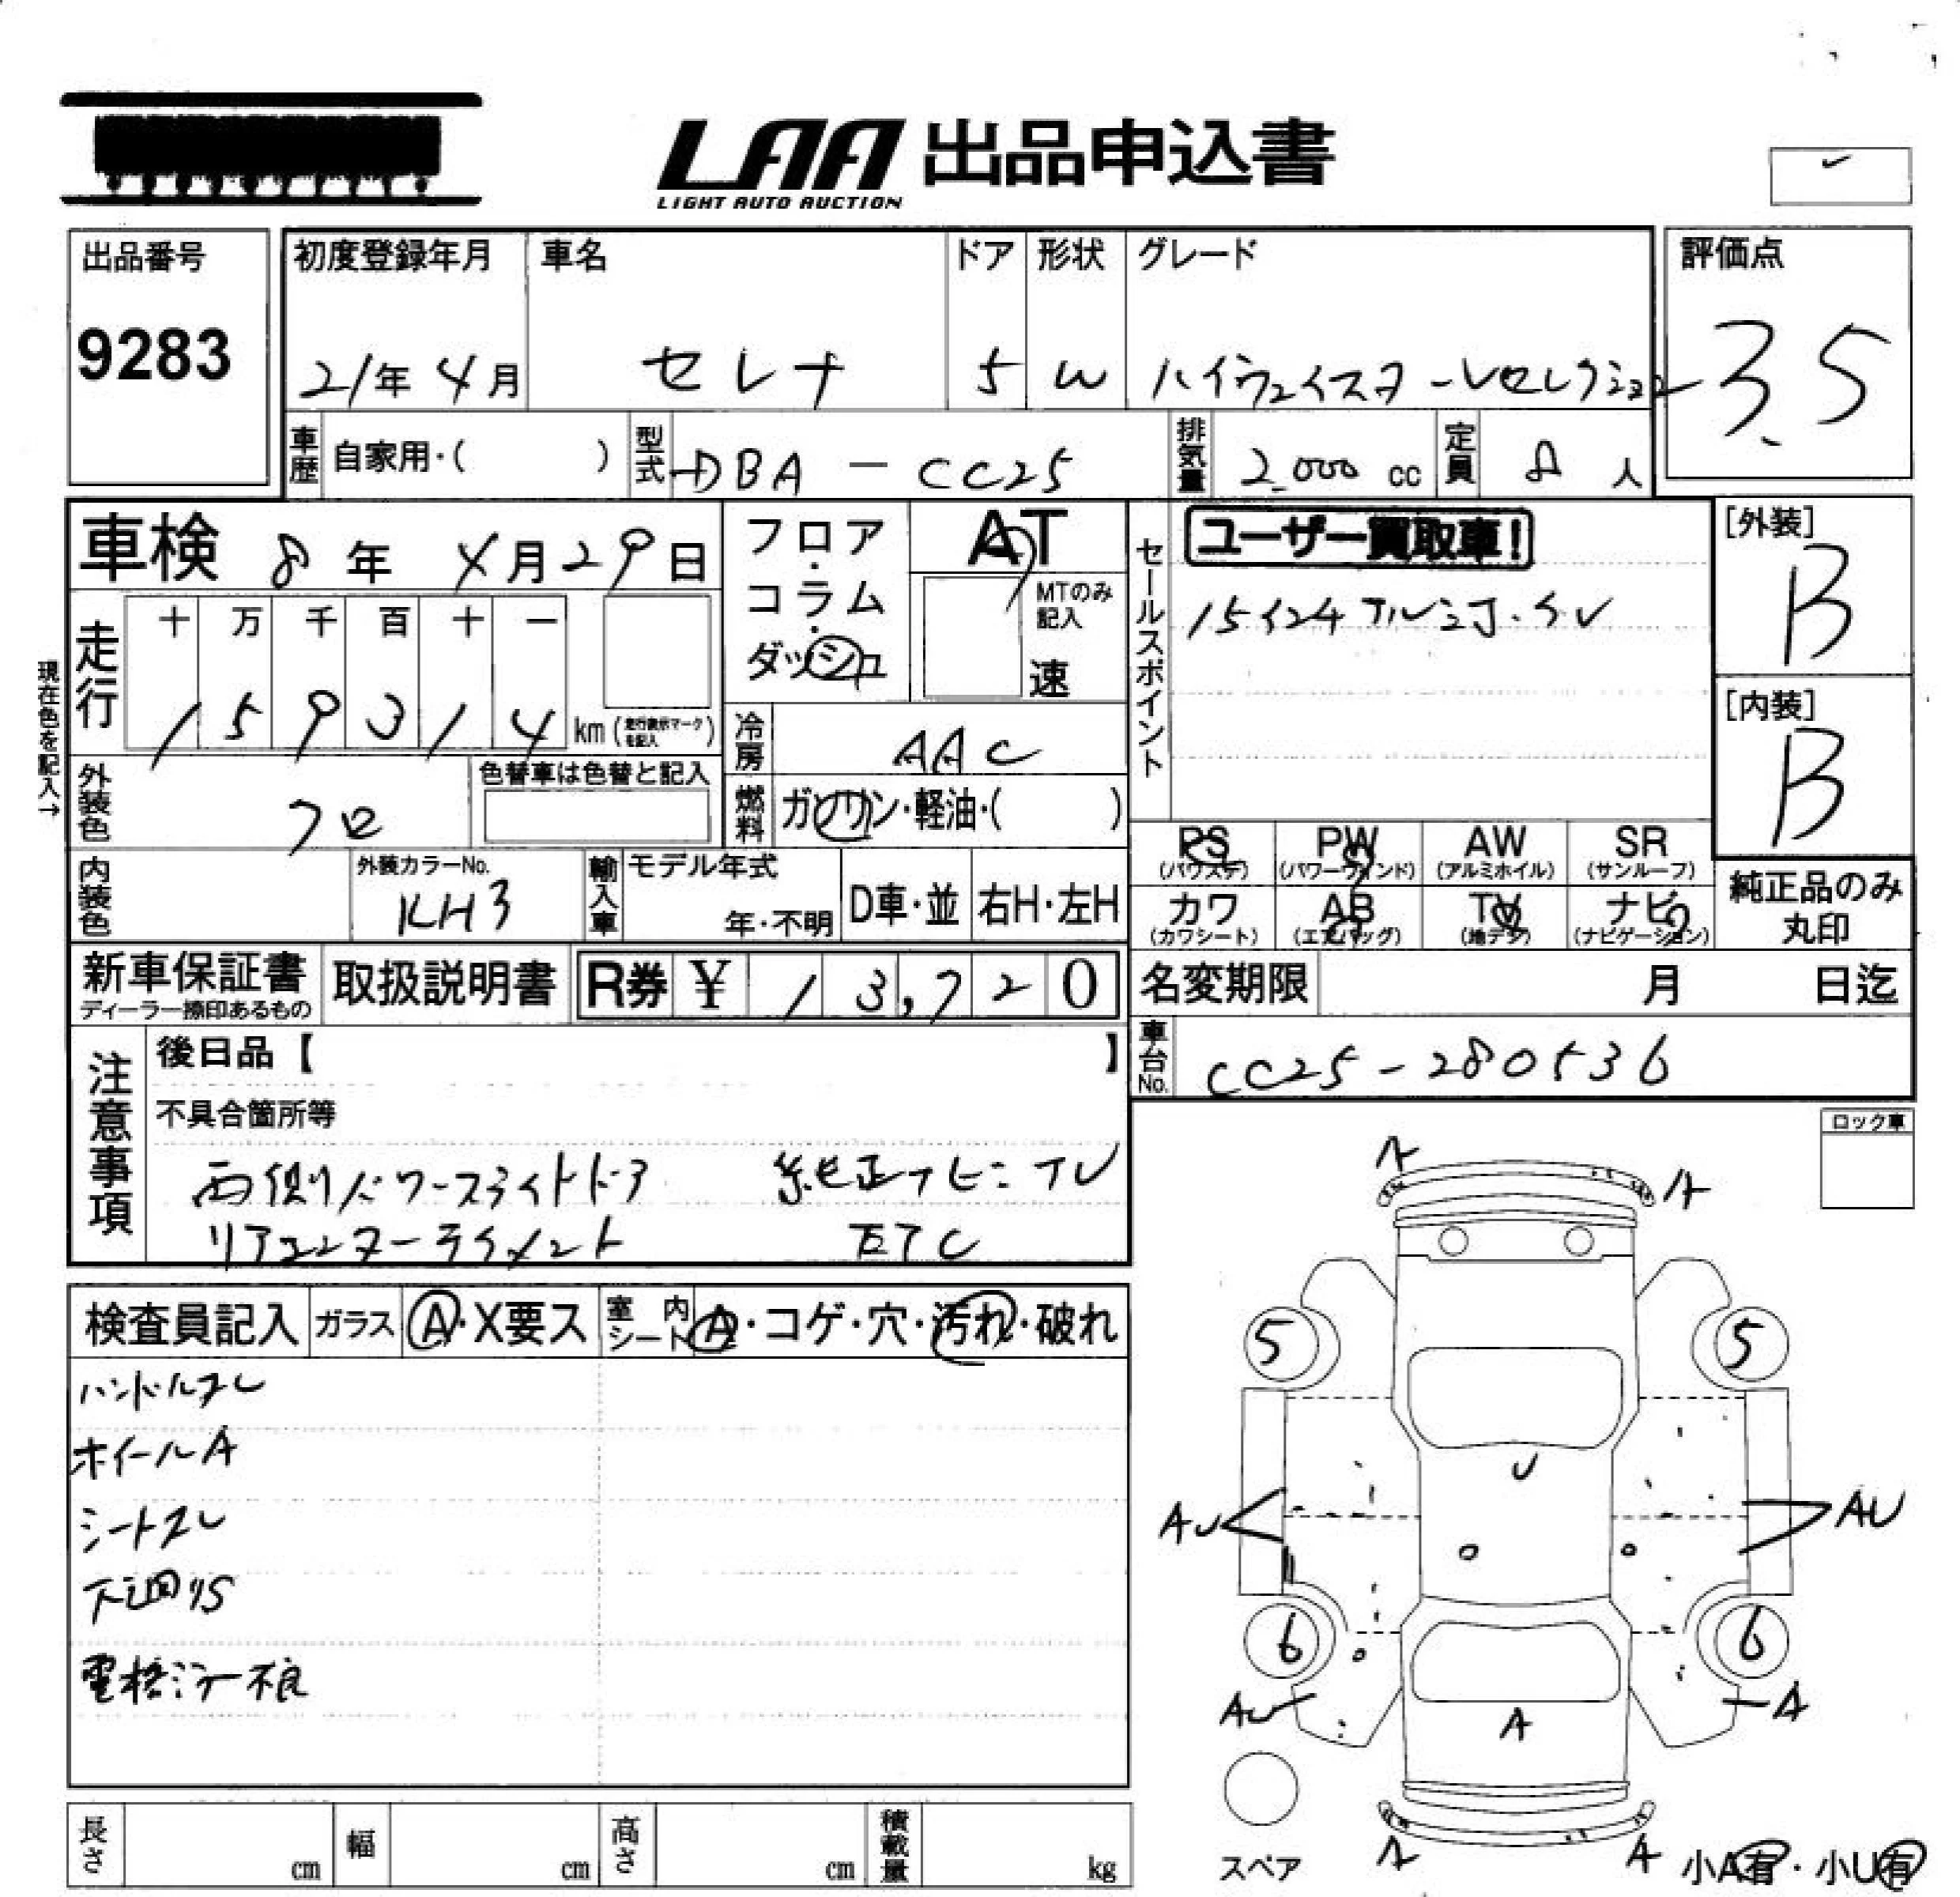 LAA 出品申込書
LIGHT AUTO AUCTION
出品番号
9283
初度登録年月
21年 4月
車名
セレナ
ドア
5
形状
W
グレード
ハイウェイスターVセレクション
評価点
3.5
車歴
自家用・( )
型式
DBA - CC25
排気量
2.000 cc
定員
8 人
車検 8年 4月29日
フロア・コラム・ダッシュ
AT
MTのみ記入
速
セールスポイント
ユーザー買取車!
15インチアルミ
[外装]
B
[内装]
B
現在色を記入→
走行
十 万 千 百 十 一
1 5 9 3 1 4 km (走行表示マークを記入)
冷房
AAC
外装色
クロ
色替車は色替と記入
燃料
ガソリン・軽油・( )
PS (パワステ)
PW (パワーウィンド)
AW (アルミホイル)
SR (サンルーフ)
カワ (カワシート)
AB (エアバッグ)
TV (地デジ)
ナビ (ナビゲーション)
純正品のみ丸印
内装色
外装カラーNo.
KH3
輸入車
モデル年式
年・不明
D車・並
右H・左H
新車保証書
ディーラー捺印あるもの
取扱説明書
R券 ¥ 13,720
名変期限 月 日迄
車台No.
CC25-280536
注意事項
後日品【 】
不具合箇所等
両側パワースライドドア 純正ナビ:TV
リアエンターテイメント ETC
ロック車
検査員記入
ガラス
A・X要ス
室内シート
A・コゲ・穴・汚れ・破れ
ハンドルスレ
ホイールA
シートスレ
下廻りS
電格ミラー不良
A
A
5
5
U
AU
AU
6
6
AU
A
A
A
A
スペア
小A有・小U有
長さ cm
幅 cm
高さ cm
積載量 kg